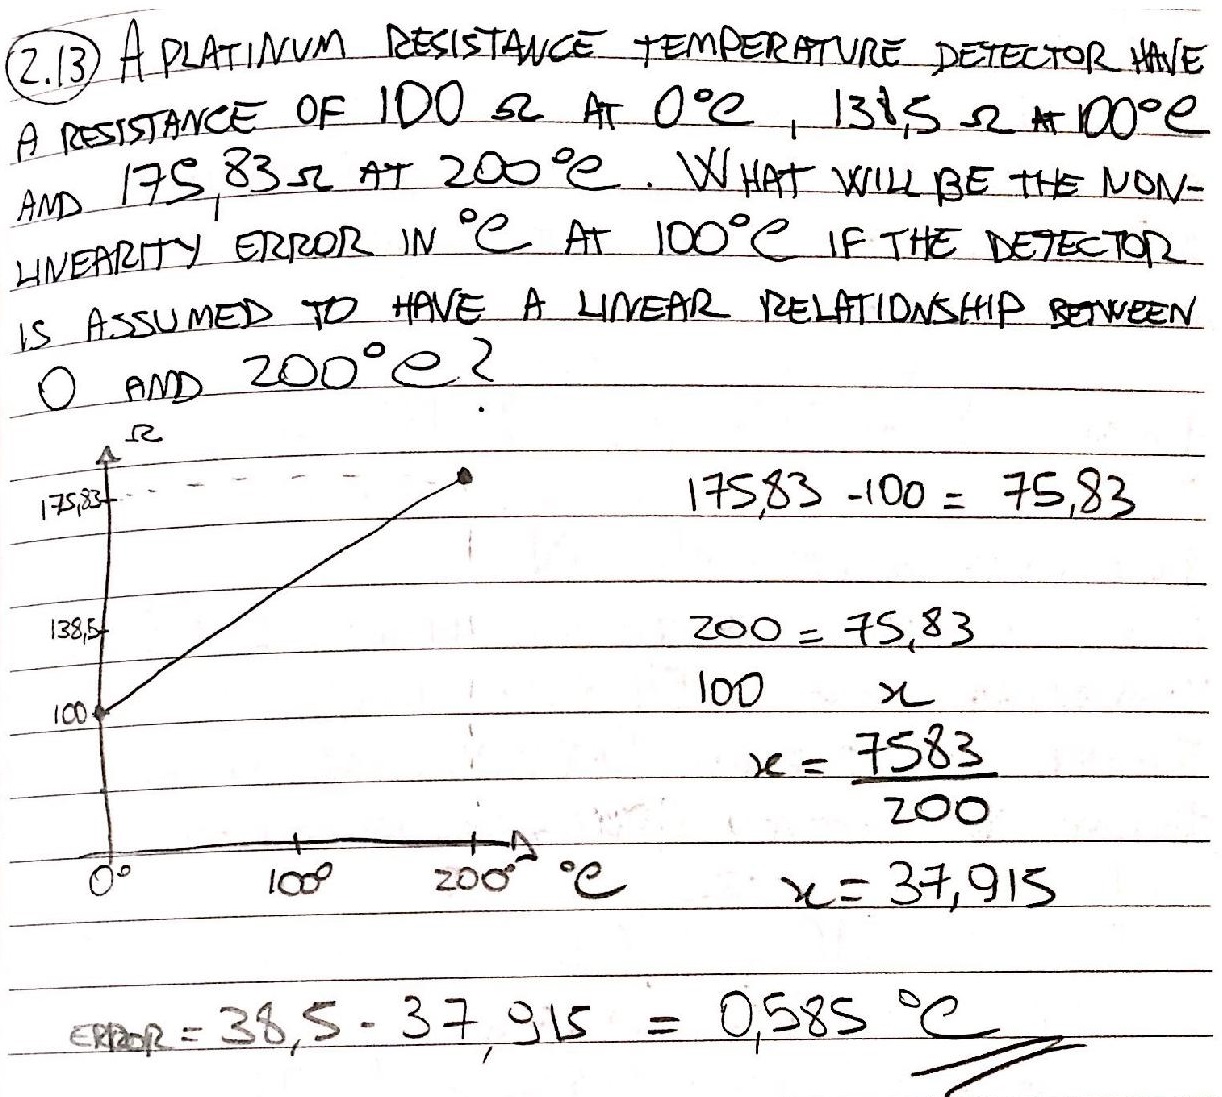 2.13 A PLATINUM RESISTANCE TEMPERATURE DETECTOR HAVE
A RESISTANCE OF 100 Ω AT 0°C, 138,5 Ω AT 100°C
AND 175,83 Ω AT 200°C. WHAT WILL BE THE NON-
LINEARITY ERROR IN °C AT 100°C IF THE DETECTOR
IS ASSUMED TO HAVE A LINEAR RELATIONSHIP BETWEEN
0 AND 200°C?
Ω
175,83
138,5
100
0°
100°
200°
°C
175,83 - 100 = 75,83
200 = 75,83
100 x
x = 7583
200
x = 37,915
ERROR = 38,5 - 37,915 = 0,585 °C